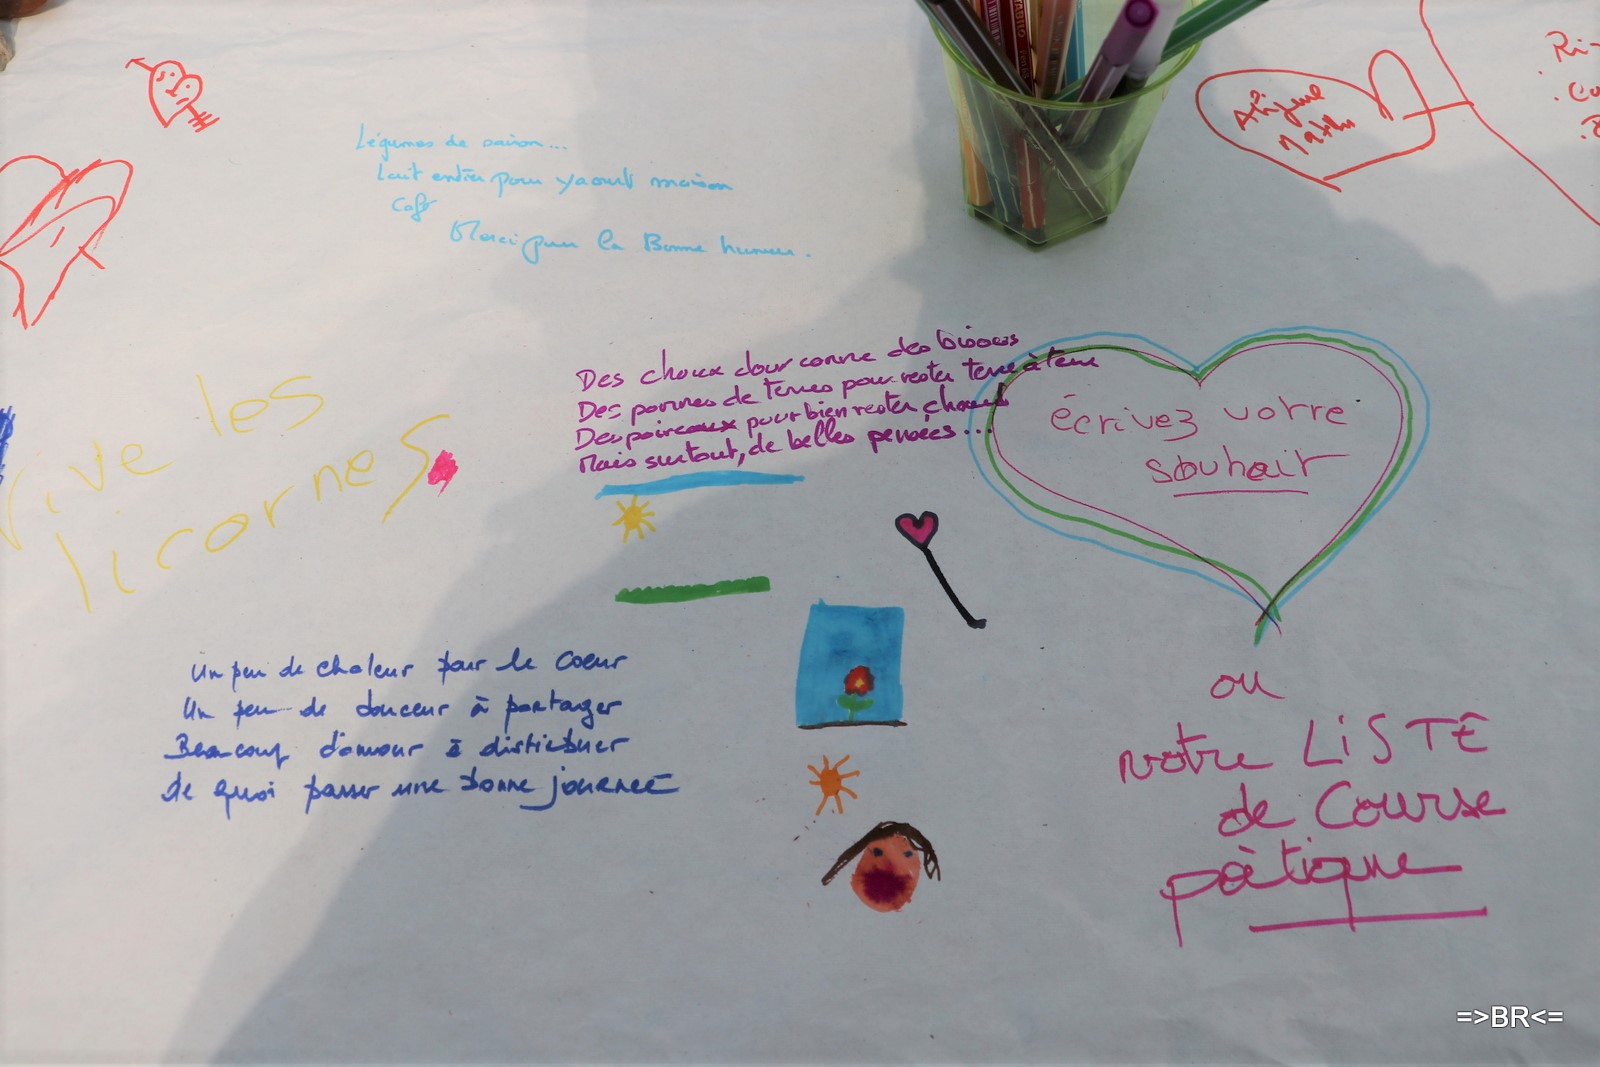 Légumes de saison...
Lait entier pour yaourt maison
Café
Merci pour la Bonne humeur.
Des choux doux comme des bisous
Des pommes de terres pour rester terre à terre
Des poireaux pour bien rester chauds
Mais surtout, de belles pensées...
écrivez votre
souhait
ou
votre LiSTE
de Course
poètique
vive les
licornes
Un peu de chaleur pour le coeur
Un peu de douceur à partager
Beaucoup d'amour à distribuer
de quoi passer une bonne journée
=>BR<=